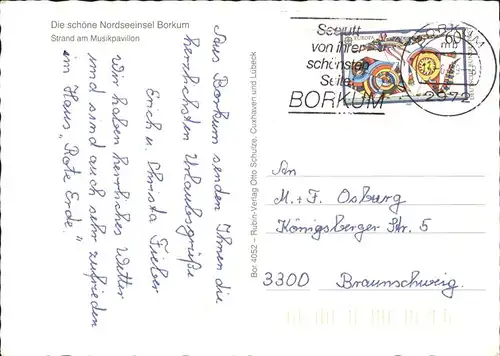 Die schöne Nordseeinsel Borkum
Strand am Musikpavillon
Aus Borkum senden Ihnen die
herzlichsten Urlaubsgrüße
Erich u. Christa Fieber
Wir haben herrliches Wetter
und sind auch sehr zufrieden
im Haus „Rote Erde."
Bor 4052 – Rubin-Verlag Otto Schulze, Cuxhaven und Lübeck
Seeluft
von ihrer
schönsten
Seite
BORKUM
EUROPA
60
BORKUM
2972
An
M. + F. Osburg
Königsberger Str. 5
3300 Braunschweig.